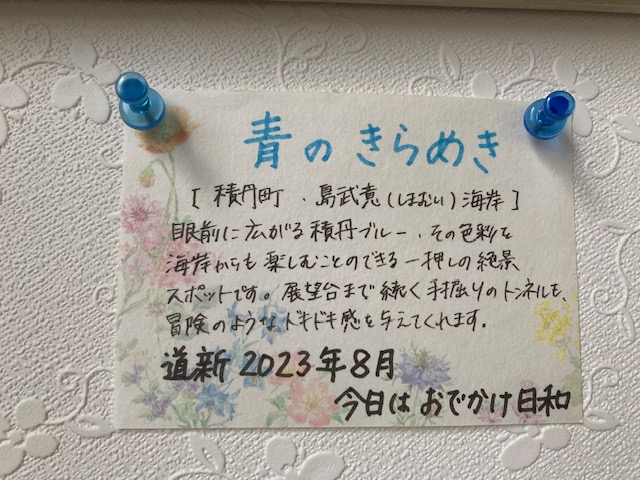 青のきらめき
[積丹町、島武意(しまむい)海岸]
眼前に広がる積丹ブルー、その色彩を
海岸からも楽しむことのできる一押しの絶景
スポットです。展望台まで続く手掘りのトンネルも、
冒険のようなドキドキ感を与えてくれます。
道新2023年8月
今日はおでかけ日和